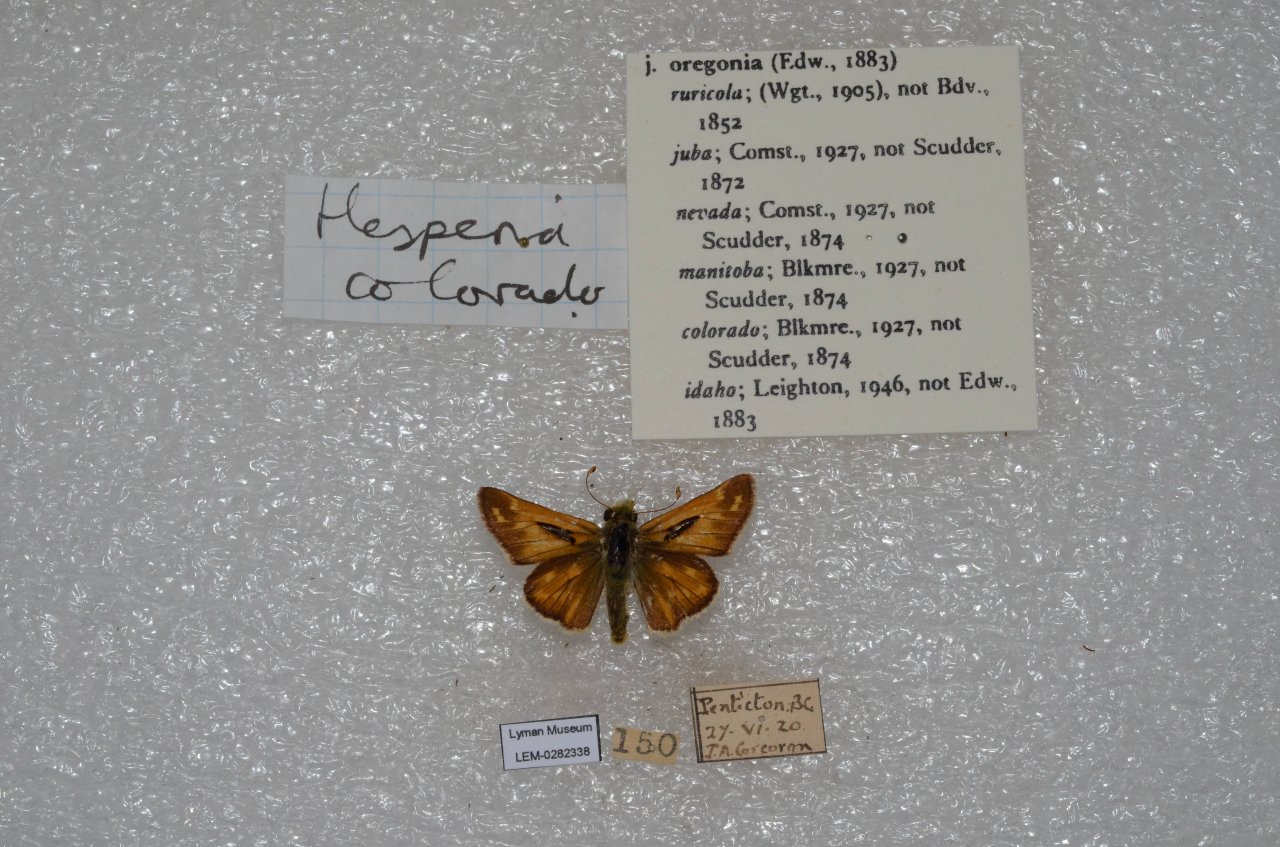 j. oregonia (Edw., 1883)
ruricola; (Wgt., 1905), not Bdv.,
1852
juba; Comst., 1927, not Scudder,
1872
nevada; Comst., 1927, not
Scudder, 1874
manitoba; Blkmre., 1927, not
Scudder, 1874
colorado; Blkmre., 1927, not
Scudder, 1874
idaho; Leighton, 1946, not Edw.,
1883
Hesperia
colorado
Lyman Museum
LEM-0282338
150
Penticton. BC
27. VI. 20
J.A. Corcoran